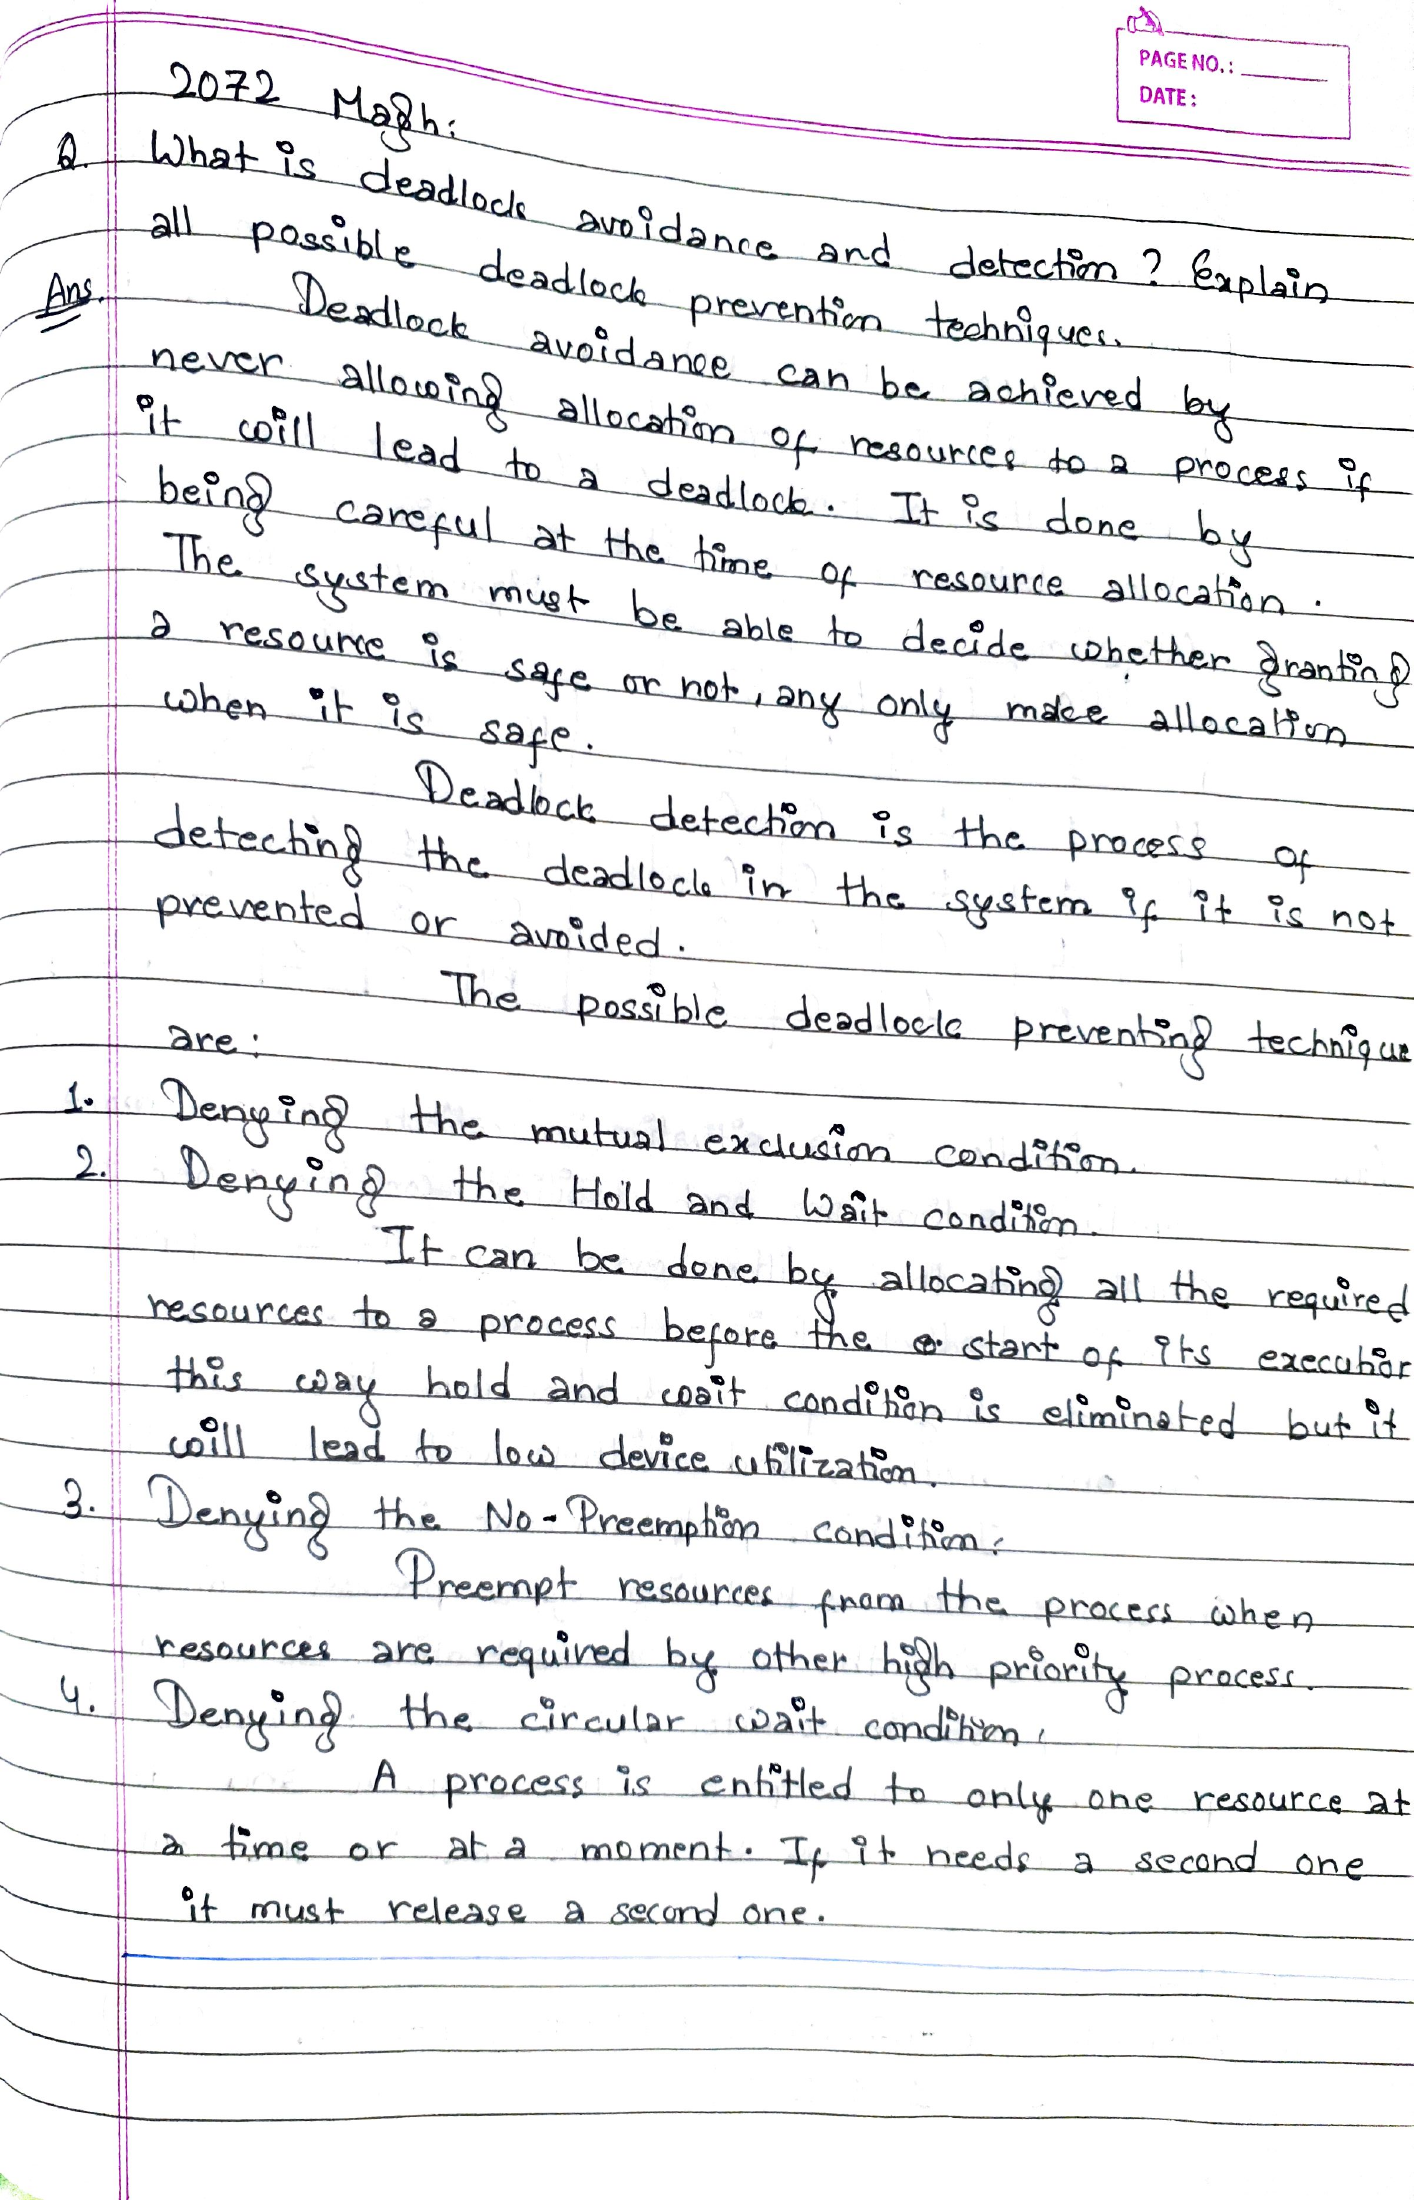 PAGE NO.:
DATE:
2072 Magh:
Q. What is deadlock avoidance and detection? Explain
all possible deadlock prevention techniques.
Ans. Deadlock avoidance can be achieved by
never allowing allocation of resources to a process if
it will lead to a deadlock. It is done by
being careful at the time of resource allocation.
The system must be able to decide whether granting
a resource is safe or not, any only make allocation
when it is safe.
Deadlock detection is the process of
detecting the deadlock in the system if it is not
prevented or avoided.
The possible deadlock preventing technique
are:
1. Denying the mutual exclusion condition.
2. Denying the Hold and Wait condition.
It can be done by allocating all the required
resources to a process before the start of its execution
this way hold and wait condition is eliminated but it
will lead to low device utilization.
3. Denying the No-Preemption condition:
Preempt resources from the process when
resources are required by other high priority process.
4. Denying the circular wait condition:
A process is entitled to only one resource at
a time or at a moment. If it needs a second one
it must release a second one.